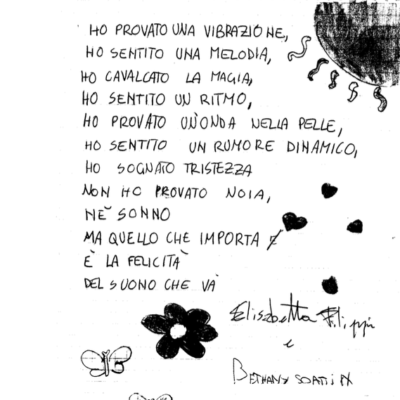 HO PROVATO UNA VIBRAZIONE,
HO SENTITO UNA MELODIA,
HO CAVALCATO LA MAGIA,
HO SENTITO UN RITMO,
HO PROVATO UN'ONDA NELLA PELLE,
HO SENTITO UN RUMORE DINAMICO,
HO SOGNATO TRISTEZZA
NON HO PROVATO NOIA,
NÈ SONNO
MA QUELLO CHE IMPORTA
È LA FELICITÀ
DEL SUONO CHE VA
Elisabetta Filippi
e
BETHANY